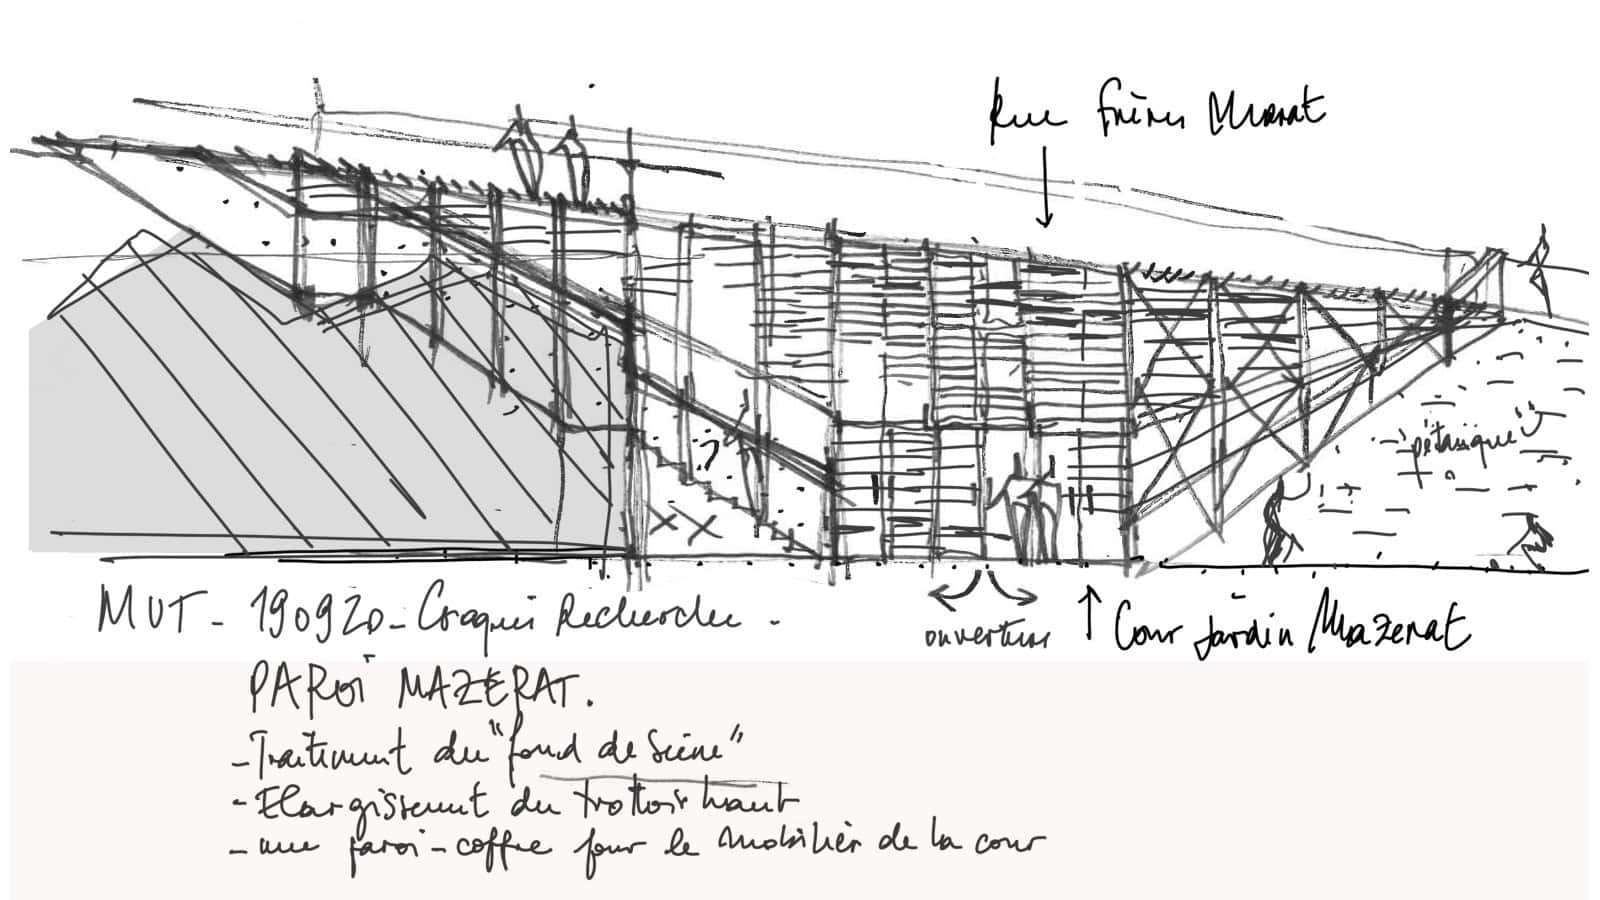 Rue Frères Marat
"pétanque"
ouverture
Cour Jardin Mazerat
MUT - 190920 - Croquis Recherche -
PAROI MAZERAT.
- Traitement du "fond de Scène"
- Elargissement du trottoir haut
- une paroi-coffre pour le mobilier de la cour